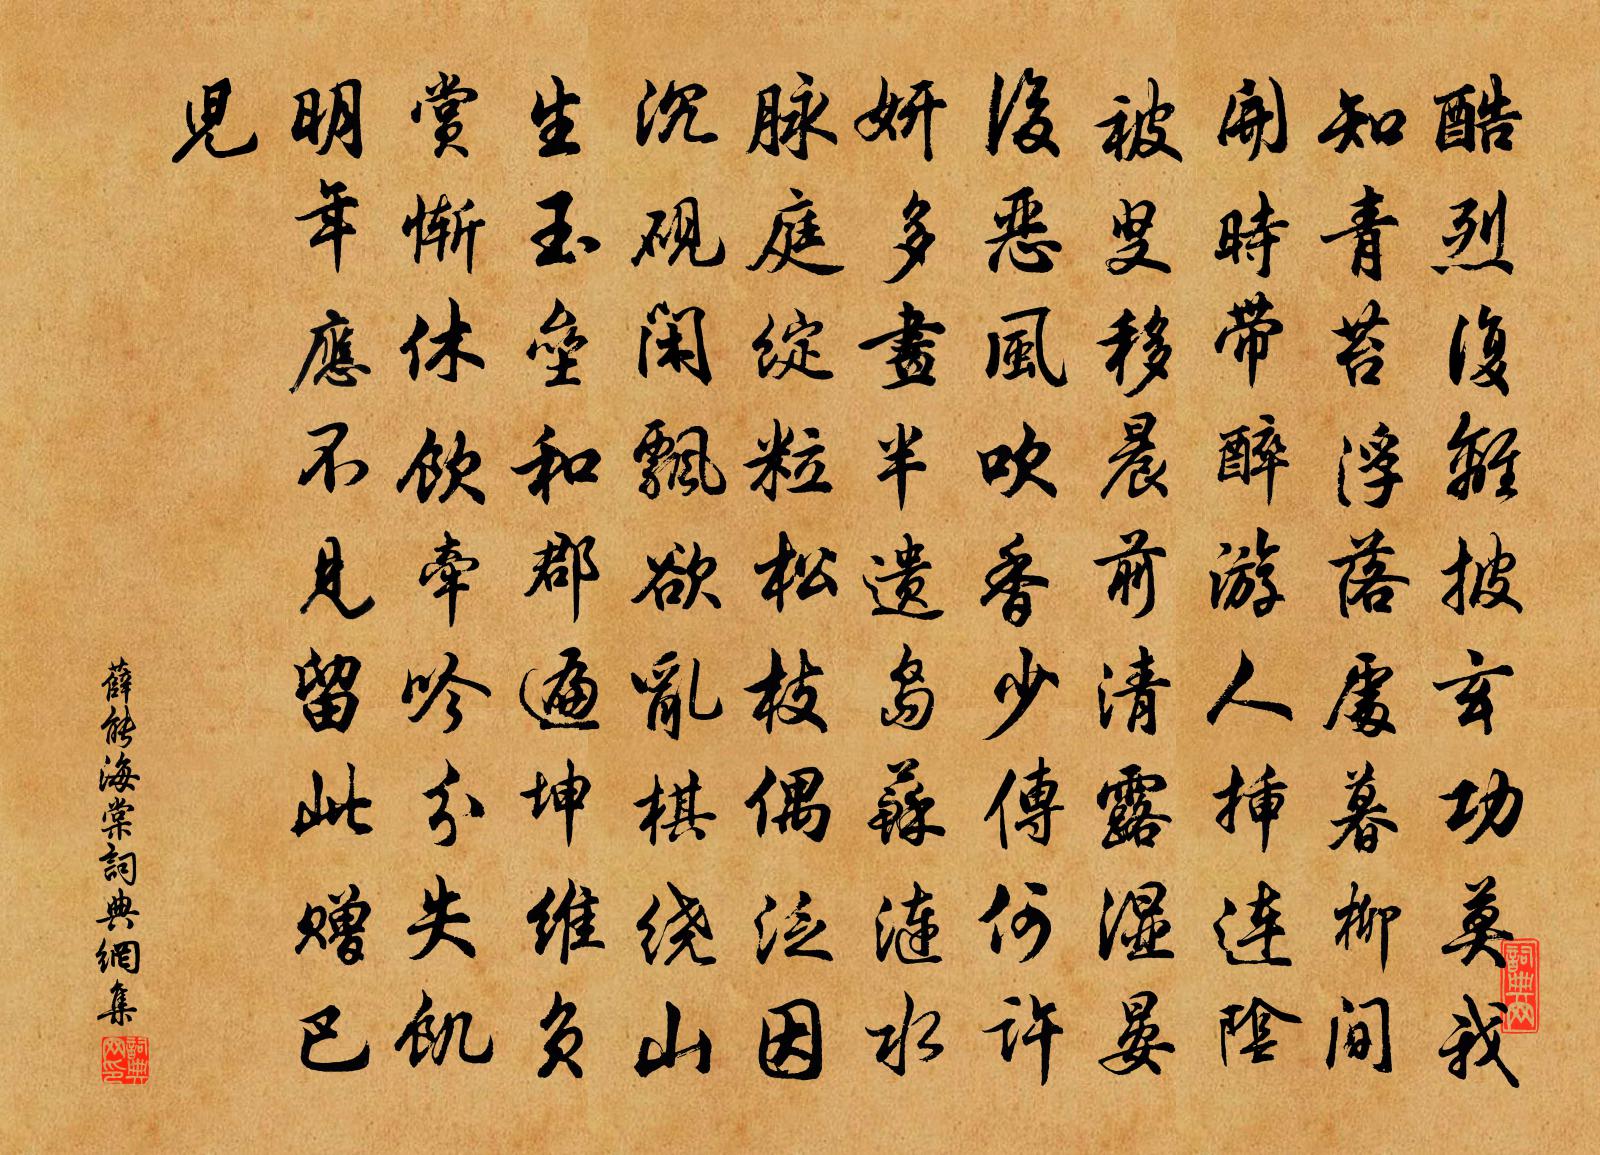 酷烈復離披玄功莫我
知青苔浮落處暮柳間
開時帶醉游人插連陰
被叟移晨前清露濕晏
後惡風吹香少傳何許
妍多畫半遺島蘇漣水
脉庭綻粒松枝偶泛因
沉硯閑飄欲亂棋繞山
生玉壘和郡遍坤維負
賞慚休飲牽吟分失飢
明年應不見留此贈巴
兒
薛能海棠詞典網集
詞典网
詞典网印